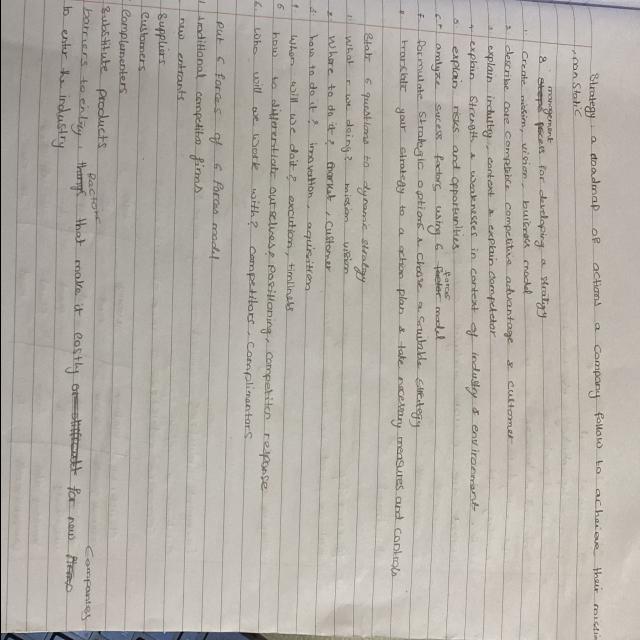 Strategy : a roadmap of actions a company follow to acheieve their missi
Static
8 management process for developing a strategy
1. Create mission, vision, business model
2. describe core competitive competitive advantage & customer
3. explain industry, context & explain competetor
4. explain strength & weaknesses in context of industry & environment.
5. explain risks and opportunities
6. analyze sucess factors using 6 forces model
7. Formulate strategic options & chose a suitable strategy
8. translate your strategy to a action plan & take necessary measures and controls
State 6 questions to dynamic strategy
1. What r we doing? mission vision
2. Where to do it? market, customer
3. how to do it? innovation, aquisition
4. When will we do it? excution, timliness
5 how to differentiate ourselves? Positioning, competition response
6. who will we work with? competitors, complimentors
Put 6 forces of 6 forces model
1. traditional competitive firms
new entrants
Suppliers
Customers
Complementers
Substitute products
barriers to entry, factors that make it costly for new companies
to enter the industry